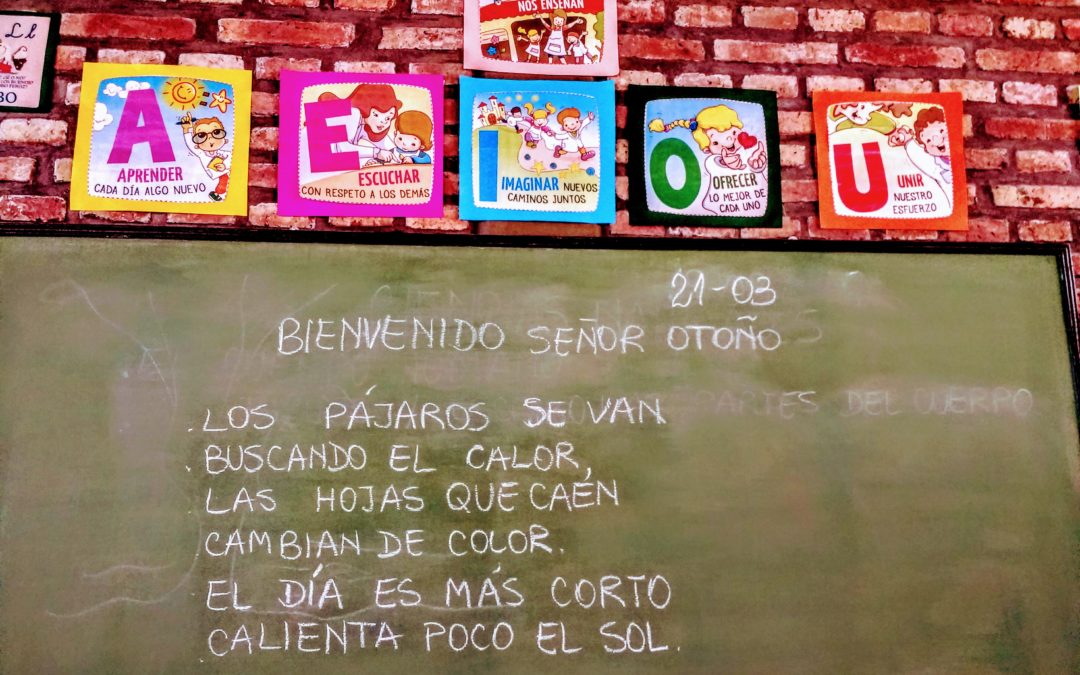 NOS ENSEÑAN
Ll
BO
A
APRENDER
CADA DÍA ALGO NUEVO
E
ESCUCHAR
CON RESPETO A LOS DEMÁS
I
IMAGINAR NUEVOS
CAMINOS JUNTOS
O
OFRECER
LO MEJOR DE
CADA UNO
U
UNIR
NUESTRO
ESFUERZO
21-03
BIENVENIDO SEÑOR OTOÑO
PARTES DEL CUERPO
.LOS PÁJAROS SE VAN
.BUSCANDO EL CALOR,
LAS HOJAS QUE CAÉN
CAMBIAN DE COLOR.
EL DÍA ES MÁS CORTO
CALIENTA POCO EL SOL.